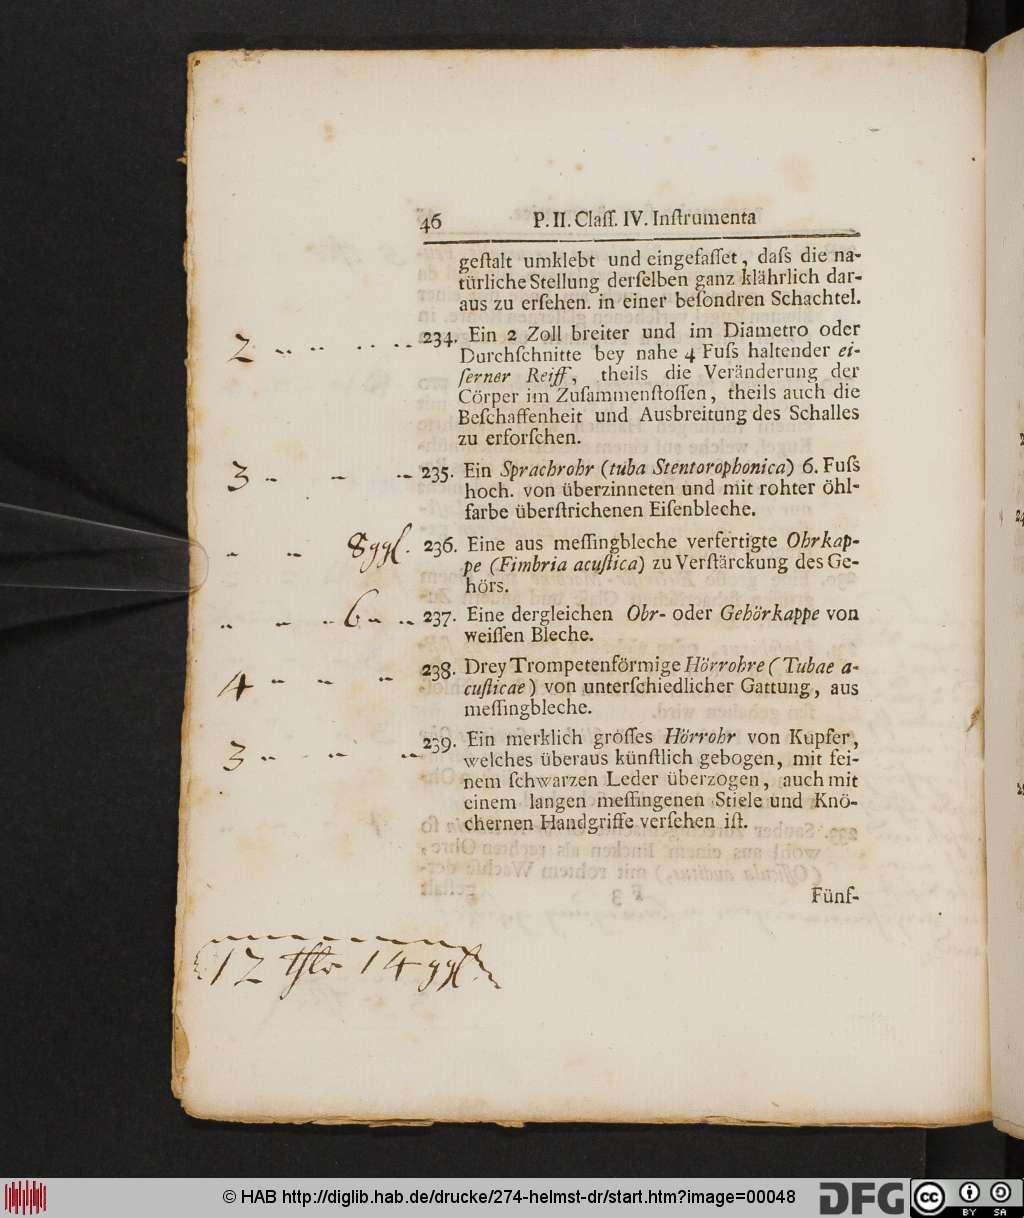 46 P. II. Claſſ. IV. Inſtrumenta
geſtalt umklebt und eingefaſſet, daſs die na-
türliche Stellung derſelben ganz klährlich dar-
aus zu erſehen. in einer beſondren Schachtel.
2 - - - - - - 234. Ein 2 Zoll breiter und im Diametro oder
Durchſchnitte bey nahe 4 Fuſs haltender ei-
ſerner Reiff, theils die Veränderung der
Cörper im Zuſammenſtoſſen, theils auch die
Beſchaffenheit und Ausbreitung des Schalles
zu erforſchen.
3 - - - - 235. Ein Sprachrohr (tuba Stentorophonica) 6. Fuſs
hoch. von überzinneten und mit rohter öhl-
farbe überſtrichenen Eiſenbleche.
- - 8 ggl. 236. Eine aus meſſingbleche verfertigte Ohrkap-
pe (Fimbria acuſtica) zu Verſtärckung des Ge-
hörs.
- - - 6 - - - 237. Eine dergleichen Ohr- oder Gehörkappe von
weiſſen Bleche.
4 - - - 238. Drey Trompetenförmige Hörrohre (Tubae a-
cuſticae) von unterſchiedlicher Gattung, aus
meſſingbleche.
3 - - - - 239. Ein merklich gröſſes Hörrohr von Kupfer,
welches überaus künſtlich gebogen, mit fei-
nem ſchwarzen Leder überzogen, auch mit
einem langen meſſingenen Stiele und Knö-
chernen Handgriffe verſehen iſt.
Fünf-
12 thlr 14 ggl
© HAB http://diglib.hab.de/drucke/274-helmst-dr/start.htm?image=00048 DFG cc BY SA